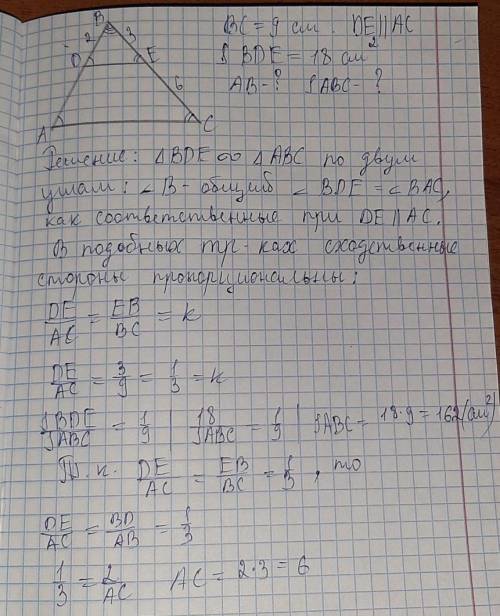 B
2 3
D E
6
A C
BC = 9 см. DE||AC
S BDE = 18 см²
AB - ? SABC - ?
Решение: ΔBDE ∞ ΔABC по двум
углам: ∠B - общий ∠BDE = ∠BAC,
как соответственные при DE||AC.
В подобных тр-ках сходственные
стороны пропорциональны:
DE/AC = EB/BC = k
DE/AC = 3/9 = 1/3 = k
SBDE/SABC = 1/9 | 18/SABC = 1/9 | SABC = 18·9 = 162 (см²)
Т.к. DE/AC = EB/BC = 1/3, то
DE/AC = BD/AB = 1/3
1/3 = 2/AC AC = 2·3 = 6